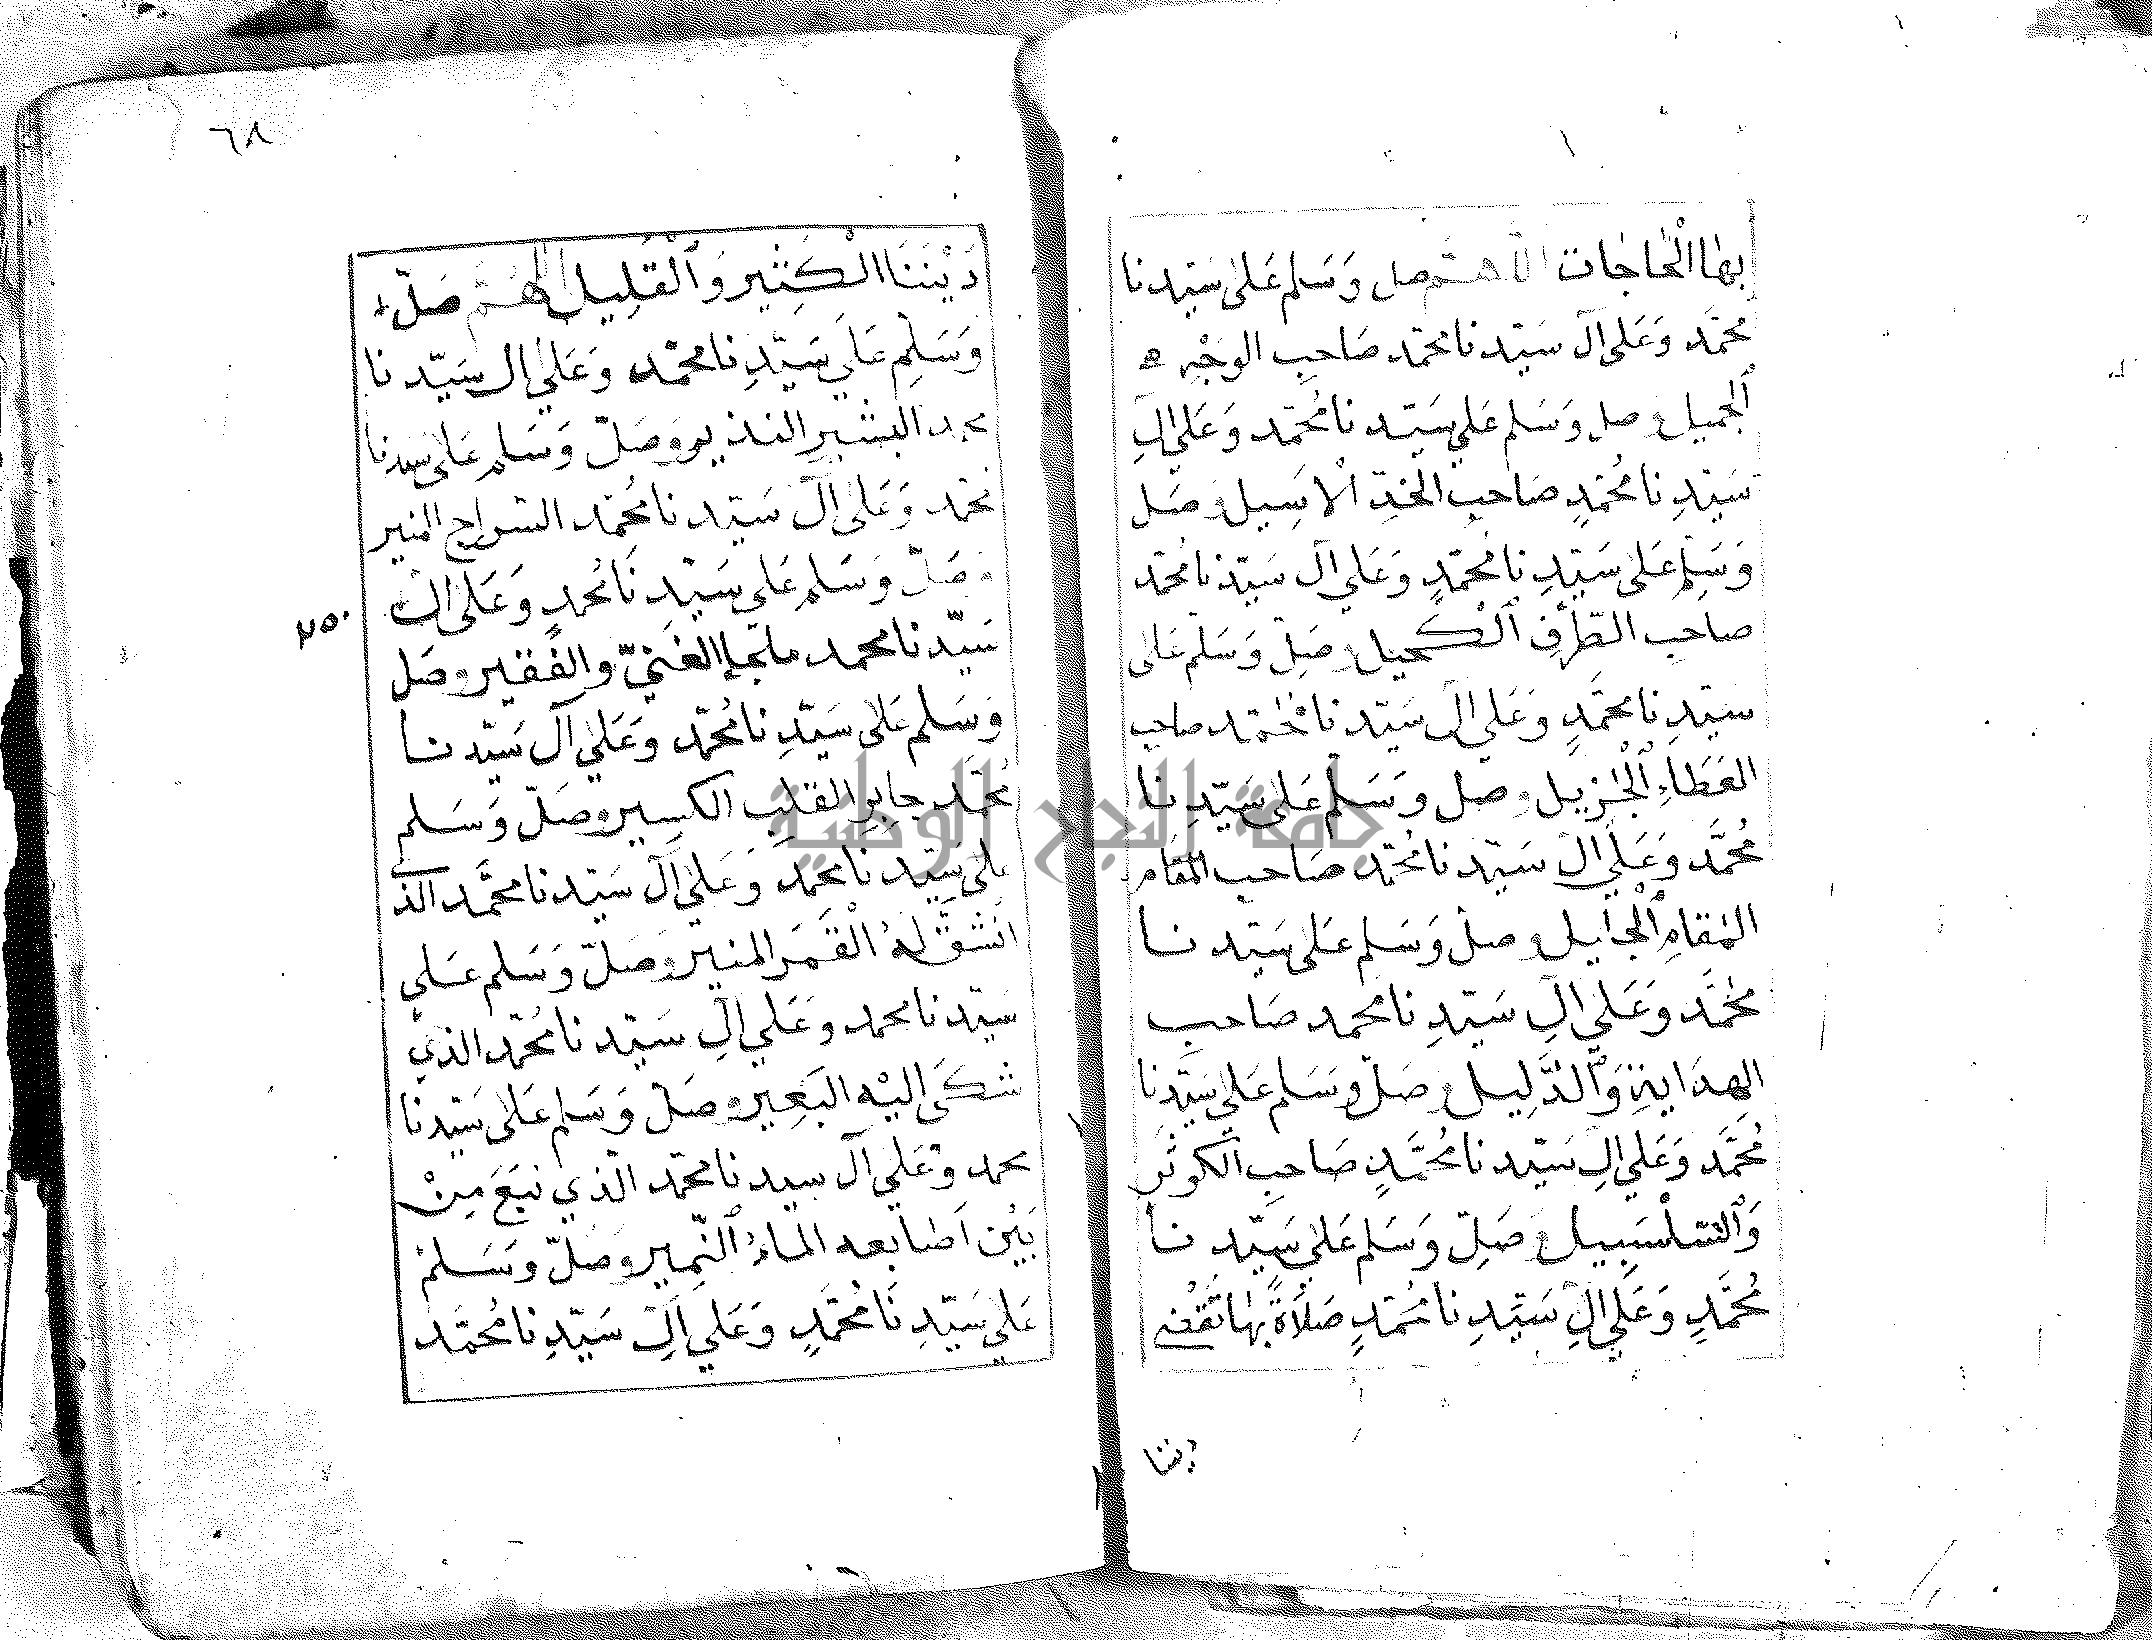 بها الحاجات اللهم صل وسلم على سيدنا
محمد وعلى آل سيدنا محمد صاحب الوجه
الجميل وصل وسلم على سيدنا محمد وعلى آل
سيدنا محمد صاحب الخد الاسيل وصل
وسلم على سيدنا محمد وعلى آل سيدنا محمد
صاحب الطرف الكحيل وصل وسلم على
سيدنا محمد وعلى آل سيدنا محمد صاحب
العطاء الجزيل وصل وسلم على سيدنا
محمد وعلى آل سيدنا محمد صاحب المقام
المقام الجليل وصل وسلم على سيدنا
محمد وعلى آل سيدنا محمد صاحب
الهداية والدليل وصل وسلم على سيدنا
محمد وعلى آل سيدنا محمد صاحب الكوثر
والسلسبيل وصل وسلم على سيدنا
محمد وعلى آل سيدنا محمد صلاة بها تقضي
ديننا
٦٨
ديننا الكثير والقليل اللهم صل
وسلم على سيدنا محمد وعلى ال سيدنا
محمد البشير النذير وصل وسلم على سيدنا
محمد وعلى آل سيدنا محمد السراج المنير
وصل وسلم على سيدنا محمد وعلى ال
٢٥٠
سيدنا محمد ملجإ الغني والفقير وصل
وسلم على سيدنا محمد وعلى آل سيدنا
محمد جابر القلب الكسير وصل وسلم
على سيدنا محمد وعلى آل سيدنا محمد الذي
انشق له القمر المنير وصل وسلم على
سيدنا محمد وعلى آل سيدنا محمد الذي
شكى اليه البعير وصل وسلم على سيدنا
محمد وعلى آل سيدنا محمد الذي نبع من
بين اصابعه الماء النمير وصل وسلم
على سيدنا محمد وعلى آل سيدنا محمد
جامعة النجاح الوطنية